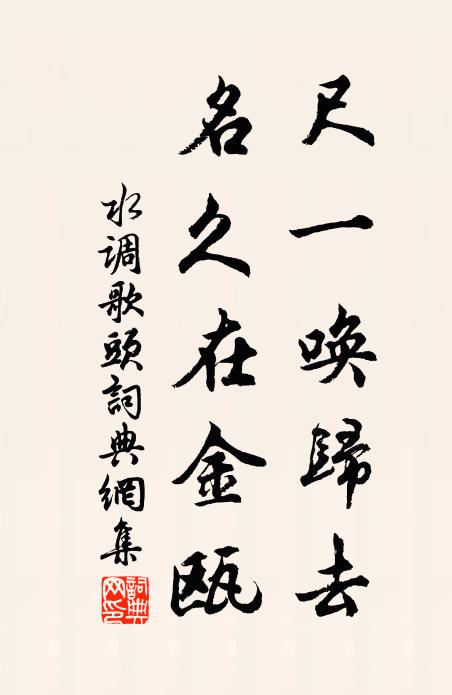 尺一唤歸去
名久在金瓯
水调歌頭詞典網集
詞典網印